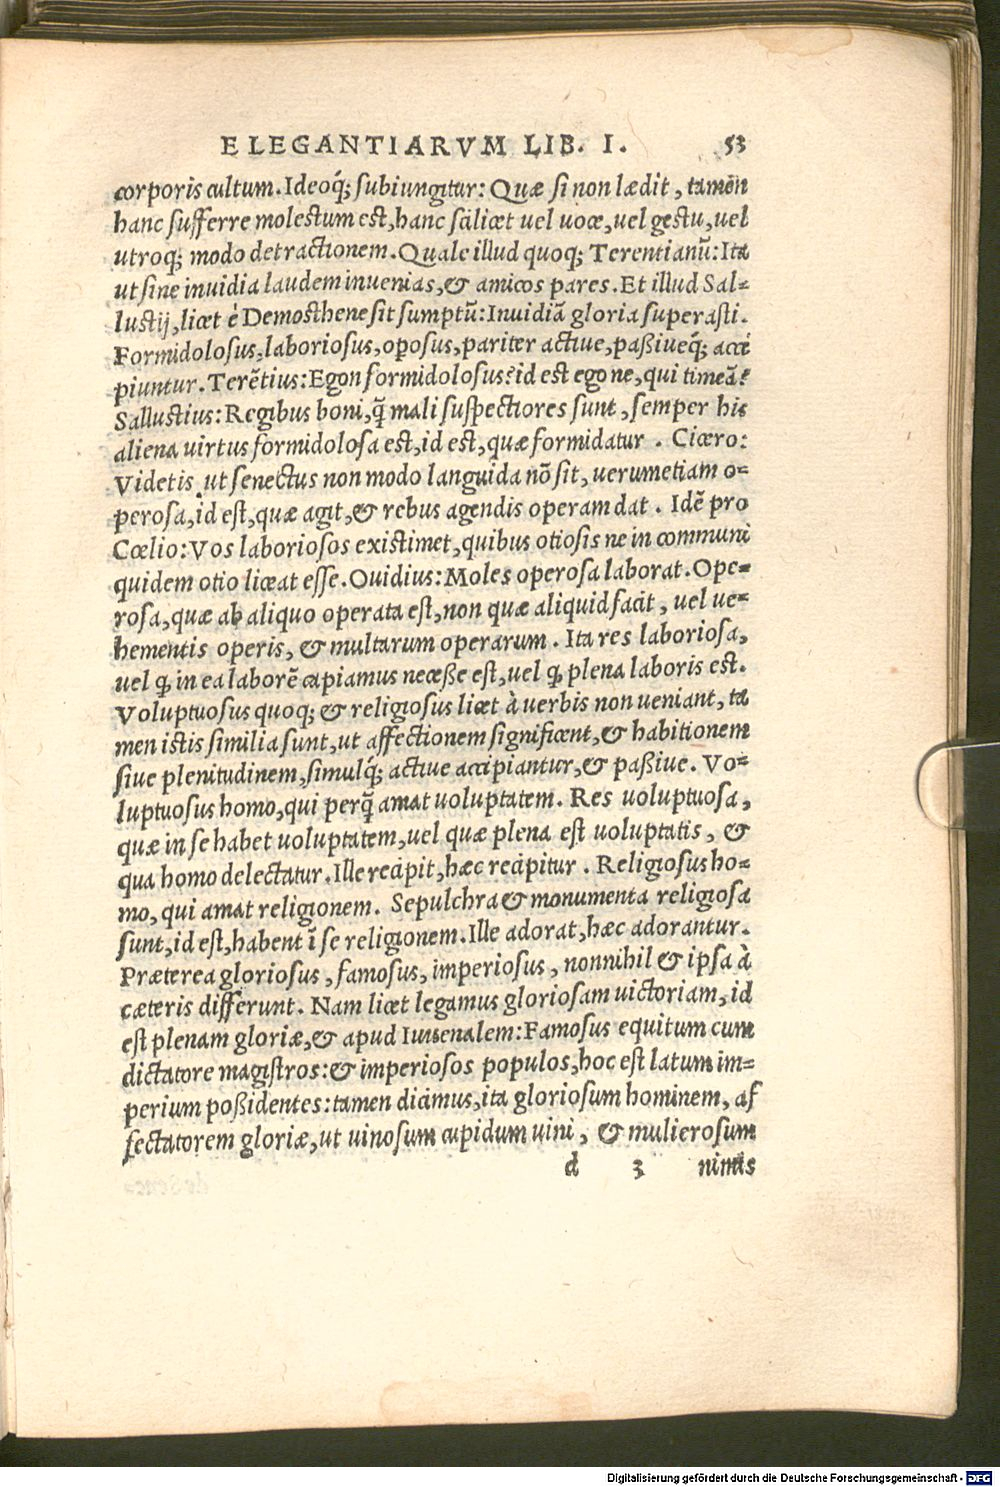 ELEGANTIARVM LIB. I. 53
corporis cultum. Ideoq́; subiungitur: Quæ si non lædit, tamen
hanc sufferre molestum est, hanc scilicet uel uoce, uel gestu, uel
utroq; modo detractionem. Quale illud quoq; Terentianũ: Ita
ut sine inuidia laudem inuenias, & amicos pares. Et illud Sal-
lustij, licet è Demosthene sit sumptũ: Inuidiã gloria superasti.
Formidolosus, laboriosus, oꝑosus, pariter actiue, paßiueq́; acci
piuntur. Terẽtius: Egon formidolosus? id est ego ne, qui timeã?
Sallustius: Regibus boni, q̃ mali suspectiores sunt, semper his
aliena uirtus formidolosa est, id est, quæ formidatur. Cicero:
Videtis, ut senectus non modo languida nõ sit, uerumetiam o-
perosa, id est, quæ agit, & rebus agendis operam dat. Idẽ pro
Cœlio: Vos laboriosos existimet, quibus otiosis ne in communi
quidem otio liceat esse. Ouidius: Moles operosa laborat. Ope-
rosa, quæ ab aliquo operata est, non quæ aliquid facit, uel ue-
hementis operis, & multarum operarum. Ita res laboriosa,
uel ꝙ in ea laborẽ capiamus neceße est, uel ꝙ plena laboris est.
Voluptuosus quoq; & religiosus licet à uerbis non ueniant, ta
men istis similia sunt, ut affectionem significent, & habitionem
siue plenitudinem, simulq́; actiue accipiantur, & paßiue. Vo-
luptuosus homo, qui perq̃ amat uoluptatem. Res uoluptuosa,
quæ in se habet uoluptatem, uel quæ plena est uoluptatis, &
qua homo delectatur. Ille recipit, hæc recipitur. Religiosus ho-
mo, qui amat religionem. Sepulchra & monumenta religiosa
sunt, id est, habent ĩ se religionem. Ille adorat, hæc adorantur.
Præterea gloriosus, famosus, imperiosus, nonnihil & ipsa à
cæteris differunt. Nam licet legamus gloriosam uictoriam, id
est plenam gloriæ, & apud Iuuenalem: Famosus equitum cum
dictatore magistros: & imperiosos populos, hoc est latum im-
perium poßidentes: tamen dicimus, ita gloriosum hominem, af
fectatorem gloriæ, ut uinosum cupidum uini, & mulierosum
d 3 nimis
Digitalisierung gefördert durch die Deutsche Forschungsgemeinschaft - DFG